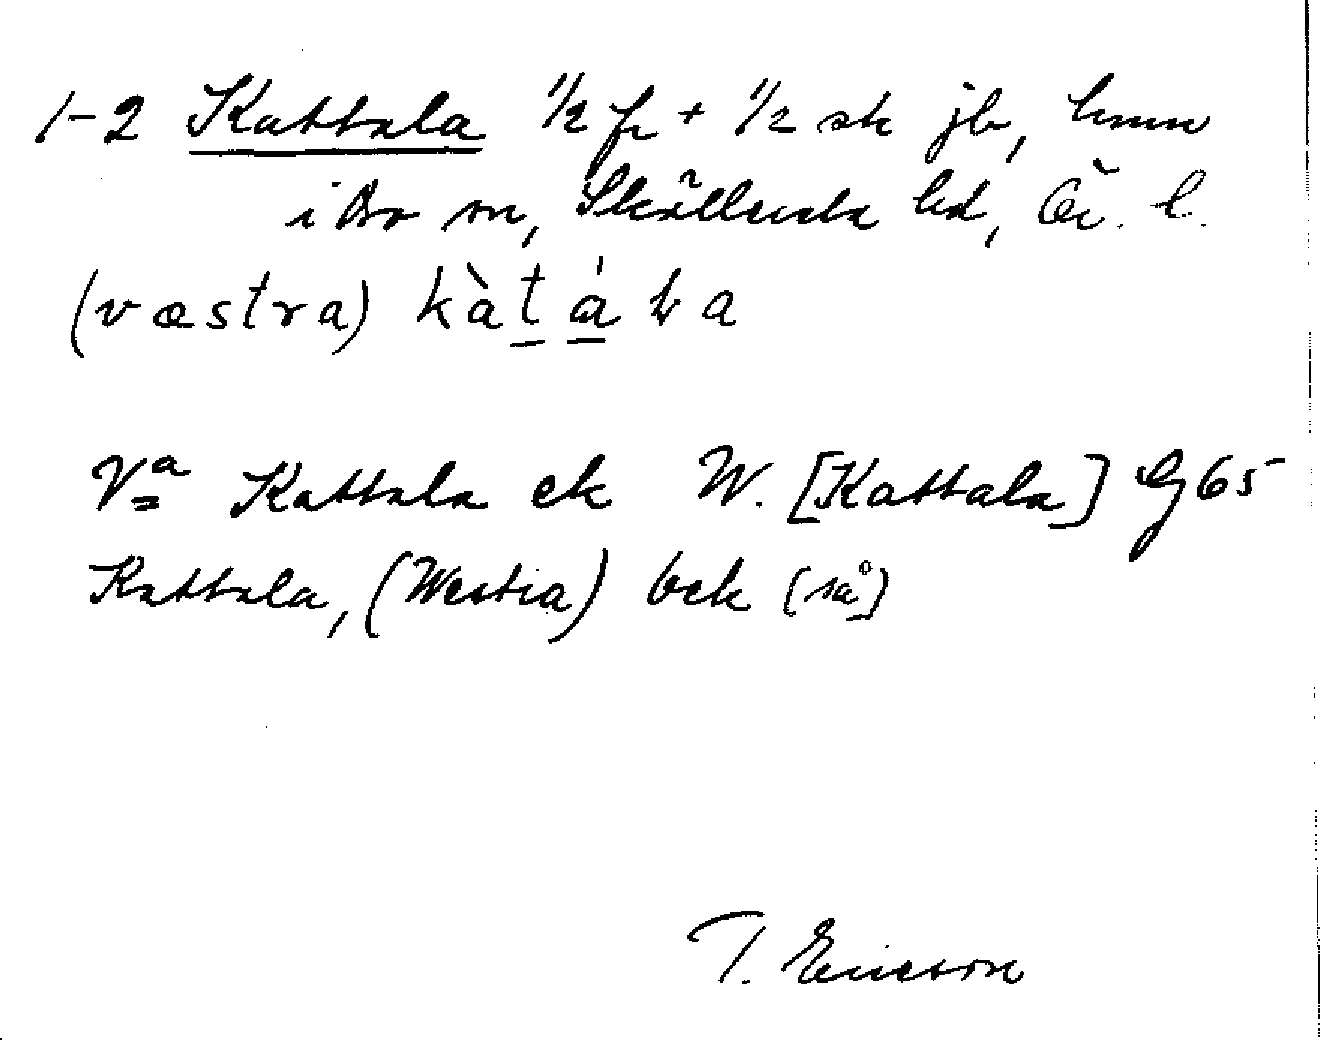 1-2 Kattala 1/2 fr + 1/2 sk jb, hmn
i Bo sn, Skyllersta hd, Ör. l.
(væstra) kàtála
Va Kattala ek W. [Kattala] G65
Kattala, (Westra) bek [så]
T. Ericson